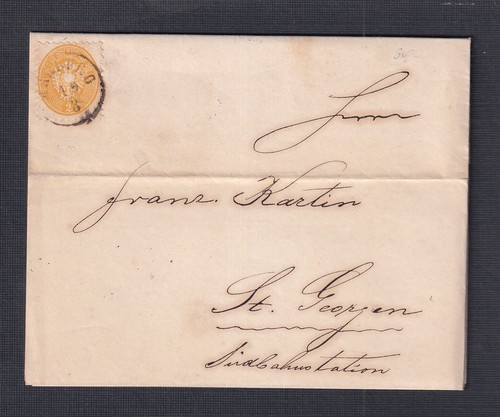 Herrn
Franz Kartin
St. Georgen
Südbahnstation